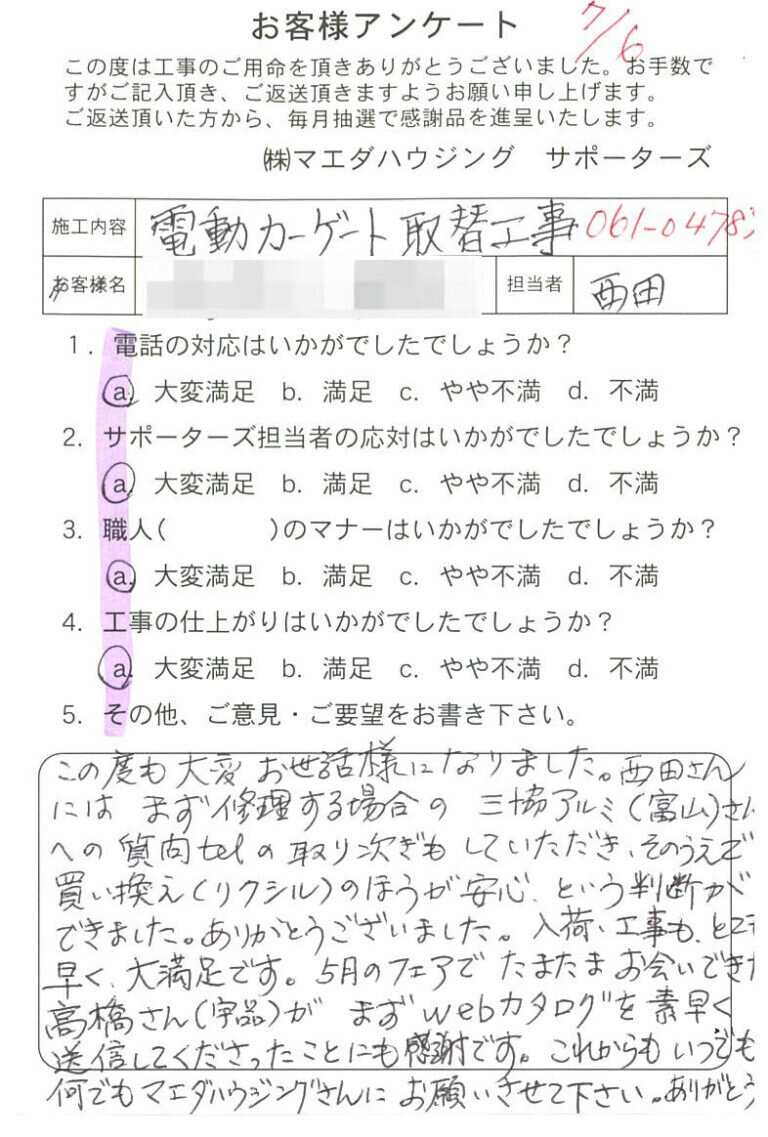 お客様アンケート 7/6
この度は工事のご用命を頂きありがとうございました。お手数で
すがご記入頂き、ご返送頂きますようお願い申し上げます。
ご返送頂いた方から、毎月抽選で感謝品を進呈いたします。
㈱マエダハウジング　サポーターズ
施工内容 電動カーゲート取替工事 061-0478
お客様名 担当者 西田
1. 電話の対応はいかがでしたでしょうか？
a. 大変満足 b. 満足 c. やや不満 d. 不満
2. サポーターズ担当者の応対はいかがでしたでしょうか？
a. 大変満足 b. 満足 c. やや不満 d. 不満
3. 職人(　　　　)のマナーはいかがでしたでしょうか？
a. 大変満足 b. 満足 c. やや不満 d. 不満
4. 工事の仕上がりはいかがでしたでしょうか？
a. 大変満足 b. 満足 c. やや不満 d. 不満
5. その他、ご意見・ご要望をお書き下さい。
この度も大変お世話様になりました。西田さん
にはまず修理する場合の三協アルミ(富山)さん
への質問telの取り次ぎもしていただき、そのうえで
買い換え(リクシル)のほうが安心、という判断が
できました。ありがとうございました。入荷、工事も、とて
早く、大満足です。5月のフェアでたまたまお会いできた
高橋さん(宇品)がまずwebカタログを素早く
送信してくださったことにも感謝です。これからもいつでも
何でもマエダハウジングさんにお願いさせて下さい。ありがとう